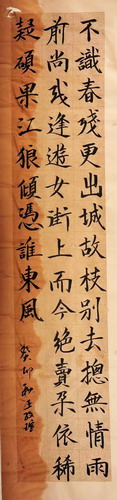 不識春殘更出城故枝别去摠無情雨
前尚或逢遊女街上而今絶賣朶依稀
疑碩果江狼傾憑誰東風
癸卯